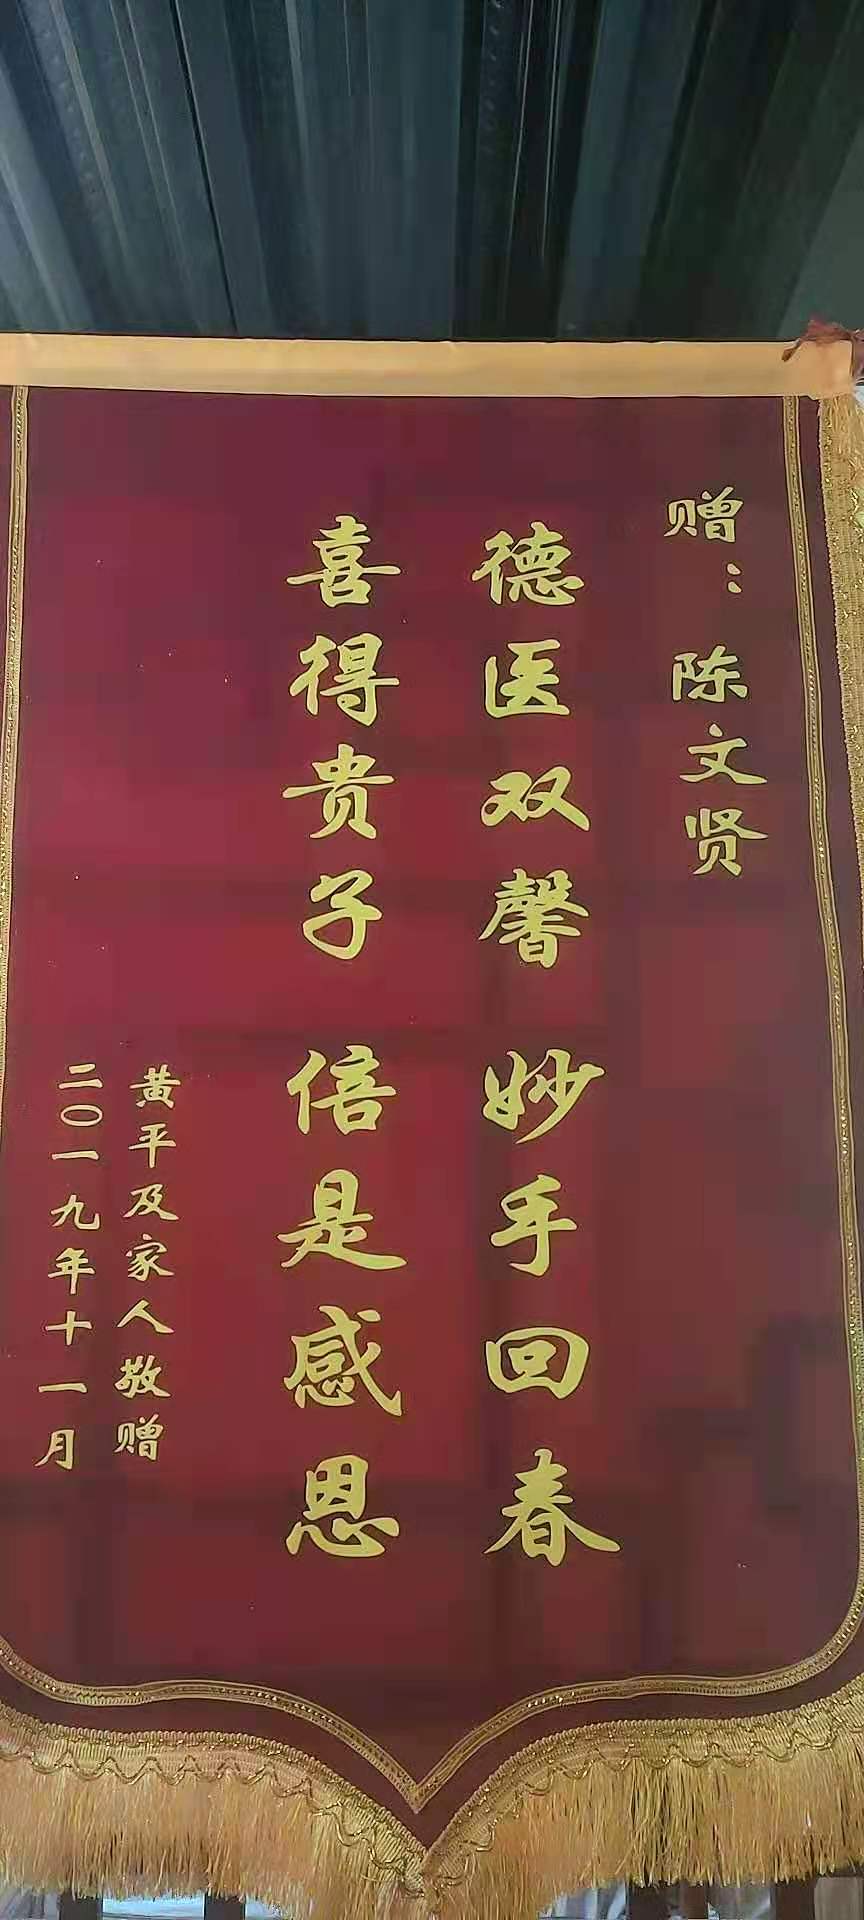 赠：陈文贤
德医双馨 妙手回春
喜得贵子 倍是感恩
黄平及家人敬赠
二〇一九年十一月